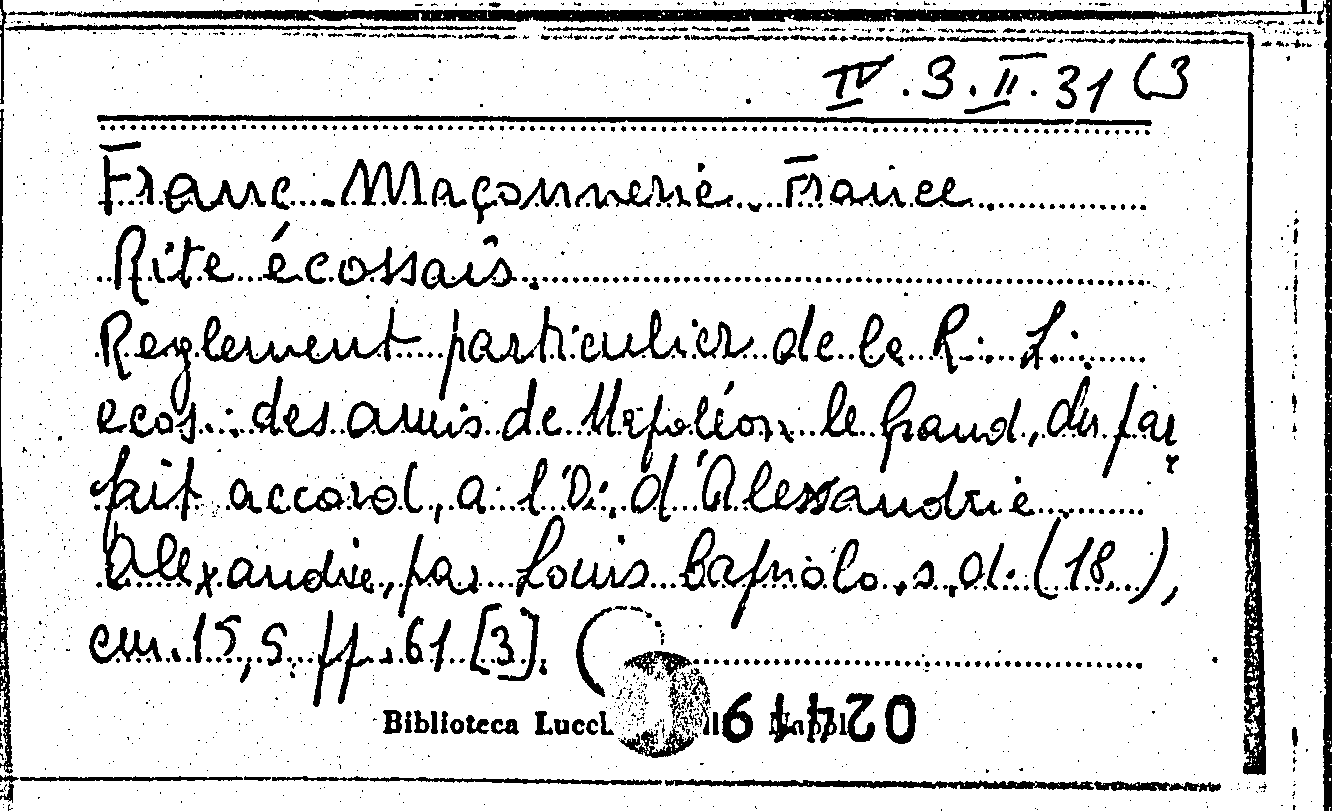 IV.3.II.31 (3
Franc-Maçonnerie. France.
Rite écossais.
Reglement particulier de la R∴ L∴
ecos∴ des amis de Napoléon le grand, du par
fait accord, a l'O∴ d'Alessandrie
Alexandrie, par Louis Capriolo. s.d. (18..),
cm. 15,5 pp. 61 [3].
Biblioteca
024419